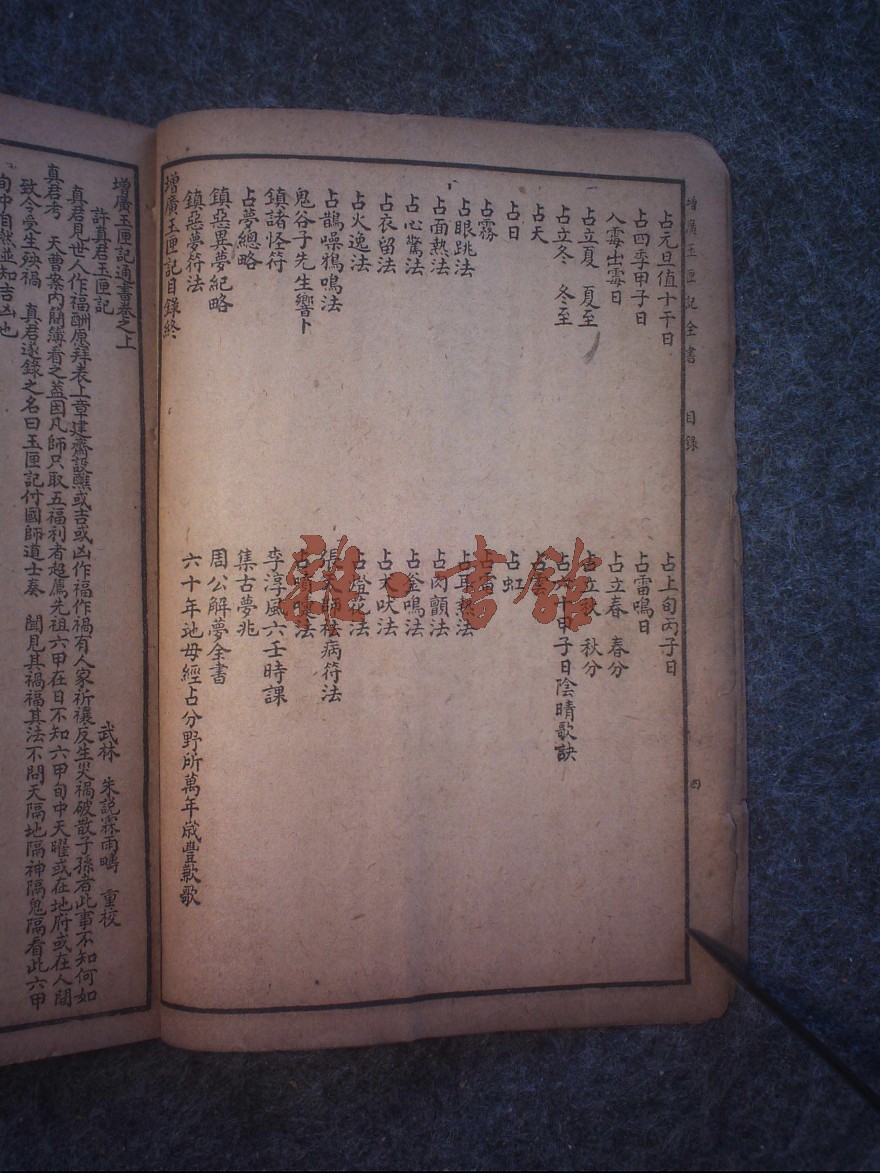 增廣玉匣記全書 目錄 四
占元旦值十干日
占上旬丙子日
占四季甲子日
占雷鳴日
入霉出霉日
占立春 春分
占立夏 夏至
占立秋 秋分
占立冬 冬至
占六十甲子日陰晴歌訣
占天
占雲
占日
占虹
占霧
占霞
占眼跳法
占耳熱法
占面熱法
占肉顫法
占心驚法
占釜鳴法
占衣留法
占犬吠法
占火逸法
占燈花法
占鵲噪鴉鳴法
張天師祛病符法
鬼谷子先生響卜
占嚏噴法
鎮諸怪符
李淳風六壬時課
占夢總略
集古夢兆
鎮惡異夢紀略
周公解夢全書
鎮惡夢符法
六十年地母經占分野所萬年歲豐歉歌
增廣玉匣記目錄終
增廣玉匣記通書卷之上
許真君玉匣記
武林 朱說霖雨疇 重校
真君見世人作福酬愿拜表上章建齋設醮或吉或凶作福作禍有人家祈禳反生災禍破散子孫者此事不知何如
真君考 天曹案內簡簿看之蓋因凡師只取五福利者超薦先祖六甲在日不知六甲旬中天曜或在地府或在人間
致令受生殃禍 真君遂錄之名曰玉匣記付國師道士奏 聞見其禍福其法不問天隔地隔神隔鬼隔看此六甲
旬中自然並知吉凶也
雜·書館